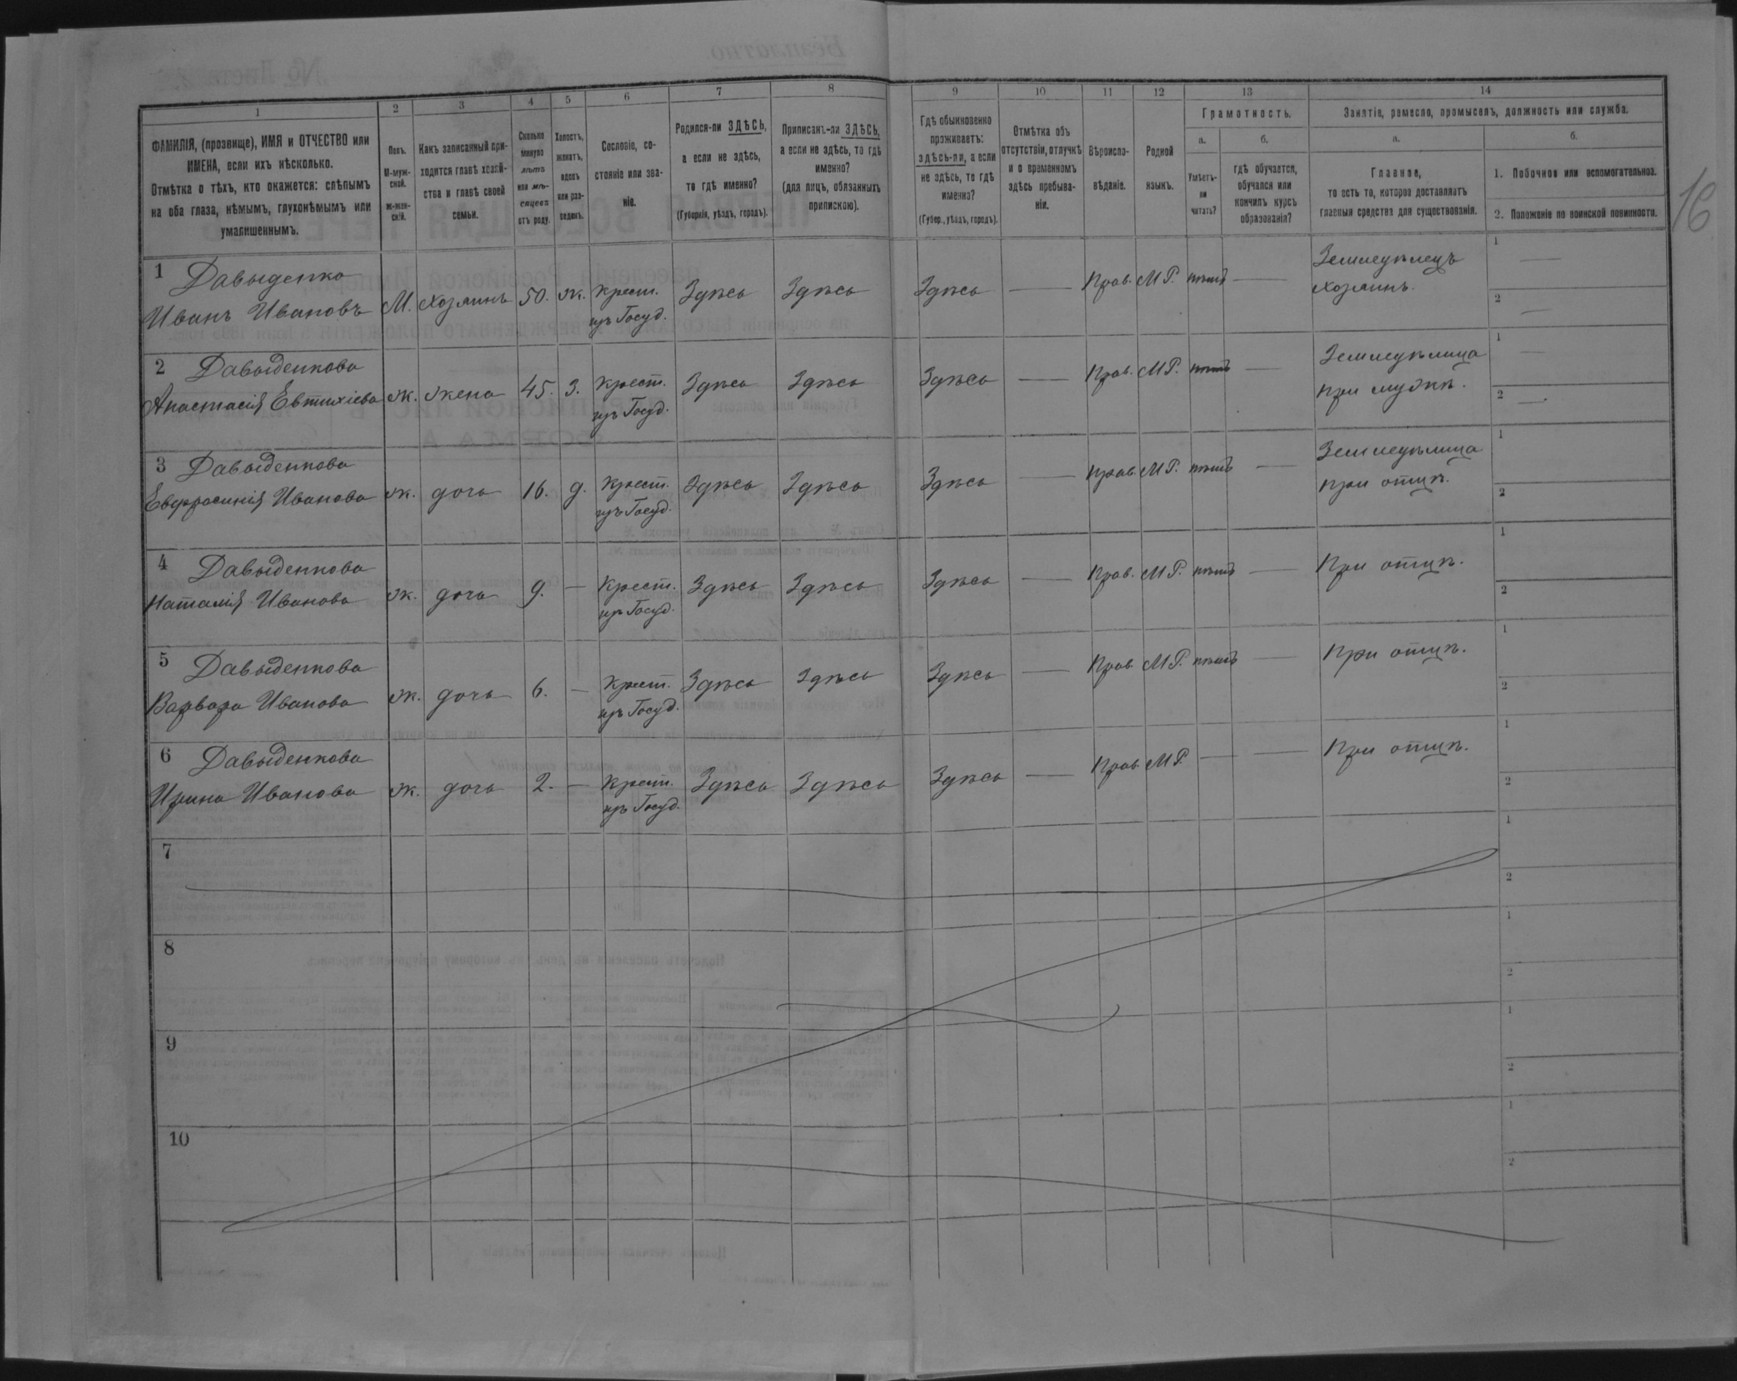 1 2 3 4 5 6 7 8 9 10 11 12 13 14
ФАМИЛІЯ, (прозвище), ИМЯ и ОТЧЕСТВО или
ИМЕНА, если ихъ нѣсколько.
Отмѣтка о тѣхъ, кто окажется: слѣпымъ
на оба глаза, нѣмымъ, глухонѣмымъ или
умалишеннымъ.
Полъ.
М-муж-
ской.
ж-жен-
скій.
Какъ записанный при-
ходится главѣ хозяй-
ства и главѣ своей
семьи.
Сколько
минуло
лѣтъ
или мѣ-
сяцевъ
отъ роду.
Холостъ,
женатъ,
вдовъ
или раз-
веденъ.
Сословіе, со-
стояніе или зва-
ніе.
Родился-ли ЗДѢСЬ,
а если не здѣсь,
то гдѣ именно?
(Губернія, уѣздъ, городъ).
Приписанъ-ли ЗДѢСЬ,
а если не здѣсь, то гдѣ
именно?
(для лицъ, обязанныхъ
припискою).
Гдѣ обыкновенно
проживаетъ:
здѣсь-ли, а если
не здѣсь, то гдѣ
именно?
(Губер., уѣздъ, городъ).
Отмѣтка объ
отсутствіи, отлучкѣ
и о временномъ
здѣсь пребыва-
ніи.
Вѣроиспо-
вѣданіе.
Родной
языкъ.
Грамотность.
а. б.
Умѣетъ-
ли
читать?
гдѣ обучается,
обучался или
кончилъ курсъ
образованія?
Занятіе, ремесло, промыселъ, должность или служба.
а. б.
Главное,
то есть то, которое доставляетъ
главныя средства для существованія.
1. Побочное или вспомогательное.
2. Положеніе по воинской повинности.
16
1 Давыденко
Иванъ Ивановъ М. хозяинъ 50. ж. крест.
изъ Госуд. Здѣсь Здѣсь Здѣсь — Прав. М.Р. нѣтъ — Земледѣлецъ
хозяинъ. 1 —
2 —
2 Давыденкова
Анастасія Евтихіева ж. жена 45. З. крест.
изъ Госуд. Здѣсь Здѣсь Здѣсь — Прав. М.Р. нѣтъ — Земледѣлица
при мужѣ. 1 —
2 —
3 Давыденкова
Евфросинія Иванова ж. дочь 16. д. крест.
изъ Госуд. Здѣсь Здѣсь Здѣсь — Прав. М.Р. нѣтъ — Земледѣлица
при отцѣ. 1
2
4 Давыденкова
Наталія Иванова ж. дочь 9. — Крест.
изъ Госуд. Здѣсь Здѣсь Здѣсь — Прав. М.Р. нѣтъ — При отцѣ. 1
2
5 Давыденкова
Варвара Иванова ж. дочь 6. — Крест.
изъ Госуд. Здѣсь Здѣсь Здѣсь — Прав М.Р. нѣтъ — При отцѣ. 1
2
6 Давыденкова
Ирина Иванова ж. дочь 2. — Крест.
изъ Госуд. Здѣсь Здѣсь Здѣсь — Прав М.Р. — — При отцѣ. 1
2
7 1
2
8 1
2
9 1
2
10 1
2